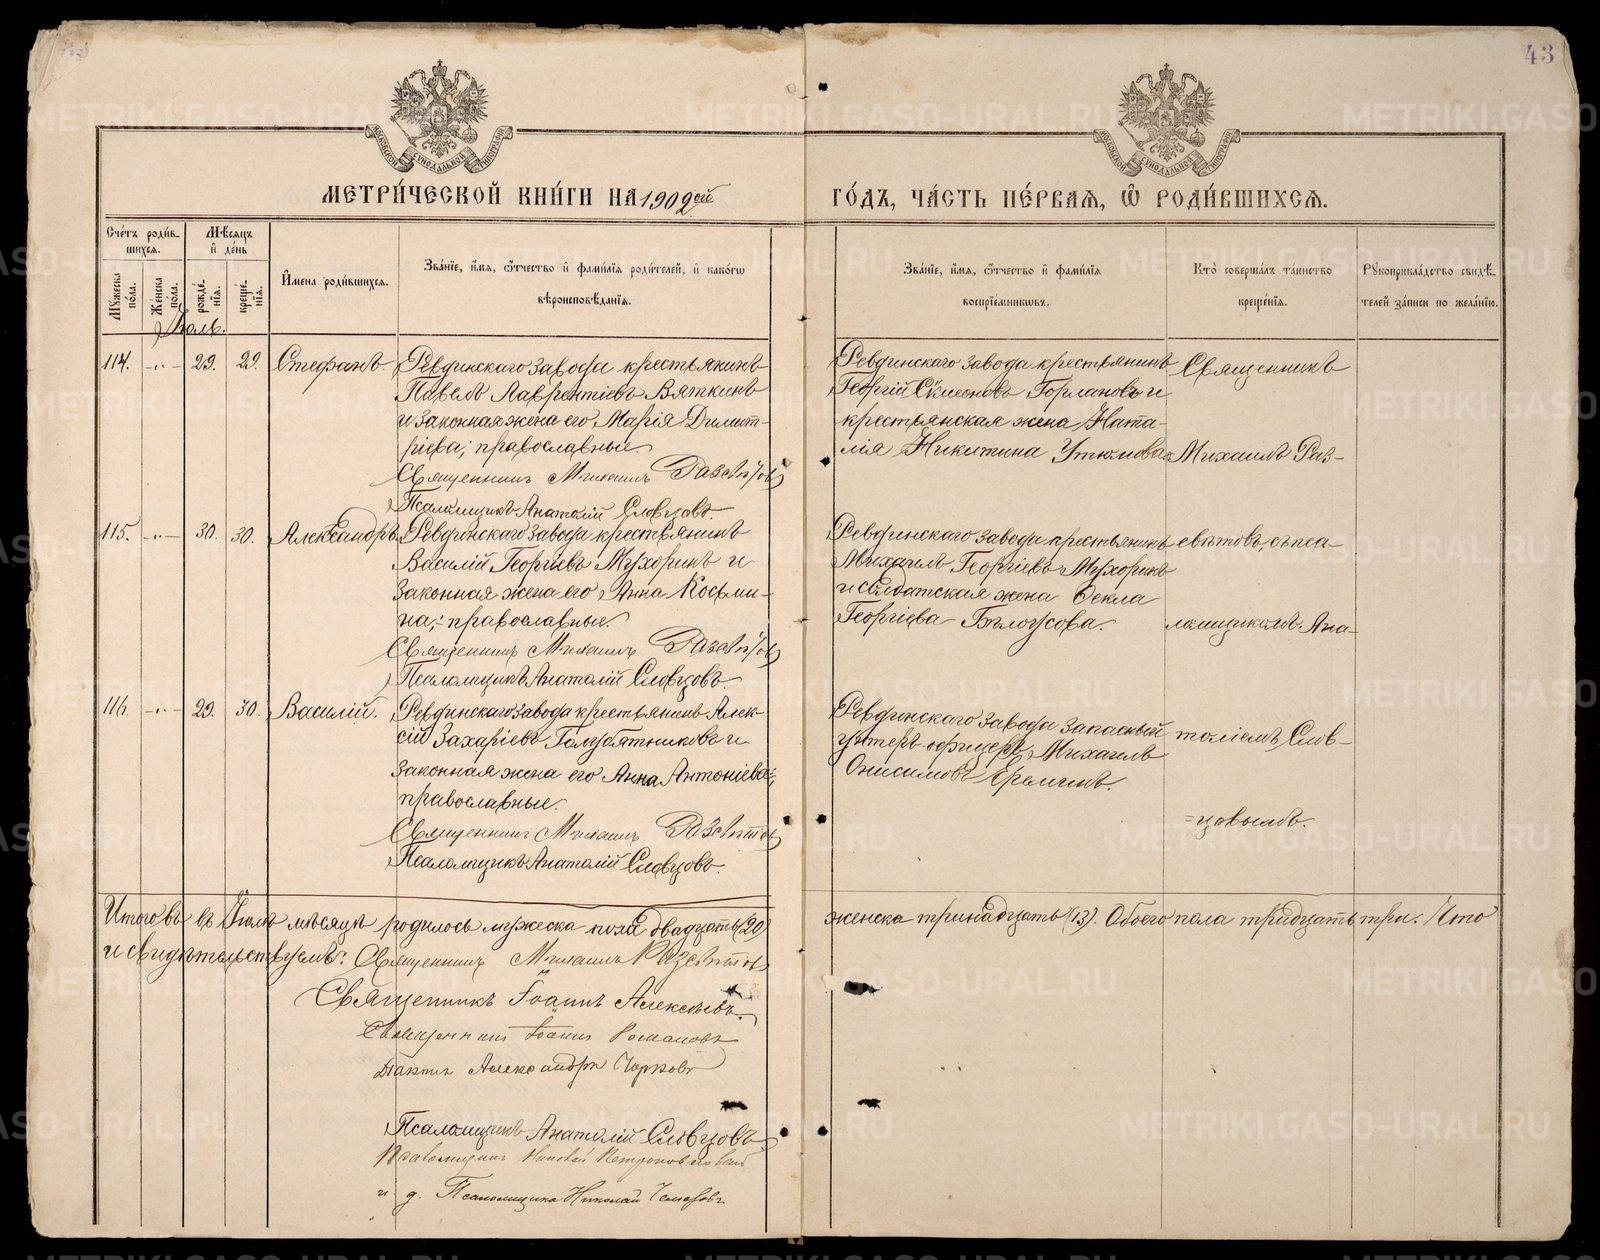 43
МОСКОВСКОЙ СѴНОДАЛЬНОЙ ТИПОГРАФІИ
МОСКОВСКОЙ СѴНОДАЛЬНОЙ ТИПОГРАФІИ
МЕТРИ́ЧЕСКОЙ КНИ́ГИ НА 1902ой
ГО́ДЪ, ЧА́СТЬ ПЕ́РВАЯ, Ѿ РОДИ́ВШИХСЯ.
Сче́тъ роди́в-
шихся.
Мѣсяцъ
и де́нь
Мꙋжеска по́ла.
Же́нска по́ла.
рожде́-
нїя.
креще́-
нїя.
Имена̀ роди́вшихся.
Зва́нїе, и́мя, ѻ҆́тчество и҆ фами́лїя роди́телей, и҆ како́гѡ
вѣроисповѣ́данїя.
Зва́нїе, и́мя, ѻ҆́тчество и҆ фами́лїя
воспрїе́мникѡвъ.
Кто̀ соверша́лъ та́инство
креще́нїя.
Рꙋкоприкла́дство свидѣ́-
телей за́писи по жела́нїю.
Іюль.
114. -„- 29. 29. Стефанъ
Ревдинскаго завода крестьянинъ
Павелъ Лаврентіевъ Вяткинъ
и законная жена его Марія Димит-
ріева; православные.
Священникъ Михаилъ Развѣтовъ
Псаломщикъ Анатолій Словцовъ.
Ревдинскаго завода крестьянинъ
Георгій Симеоновъ Горлановъ и
крестьянская жена Ната-
лія Никитина Утюмова
Священникъ
Михаилъ Раз-
115. -„- 30. 30. Александръ
Ревдинскаго завода крестьянинъ
Василій Георгіевъ Мухоринъ и
законная жена его Анна Косьми-
на; православные.
Священникъ Михаилъ
Псаломщикъ Анатолій Словцовъ.
Ревдинскаго завода крестьянинъ
Михаилъ Георгіевъ Мухоринъ
и солдатская жена Ѳекла
Георгіева Бѣлоусова.
свѣтовъ, съ пса-
ломщикомъ Ана-
116. -„- 29. 30. Василій.
Ревдинскаго завода крестьянинъ Алек-
сій Захаріевъ Голубятниковъ и
законная жена его Анна Антоніева;
православные.
Священникъ Михаилъ
Псаломщикъ Анатолій Словцовъ.
Ревдинскаго завода запасный
унтеръ-офицеръ Михаилъ
Онисимовъ Ереминъ.
толіемъ Слов-
=цовымъ.
Итого въ Іюлѣ мѣсяцѣ родилось мужеска пола двадцать (20)
женска тринадцать (13). Обоего пола тридцать три. Что
и свидѣтельствуемъ: Священникъ Михаилъ
Священникъ Іоаннъ Алексѣевъ.
Священникъ Іоаннъ Романовъ
Діаконъ Александръ
Псаломщикъ Анатолій Словцовъ
Псаломщикъ
и. д. Псаломщика Николай
METRIKI.GASO-URAL.RU